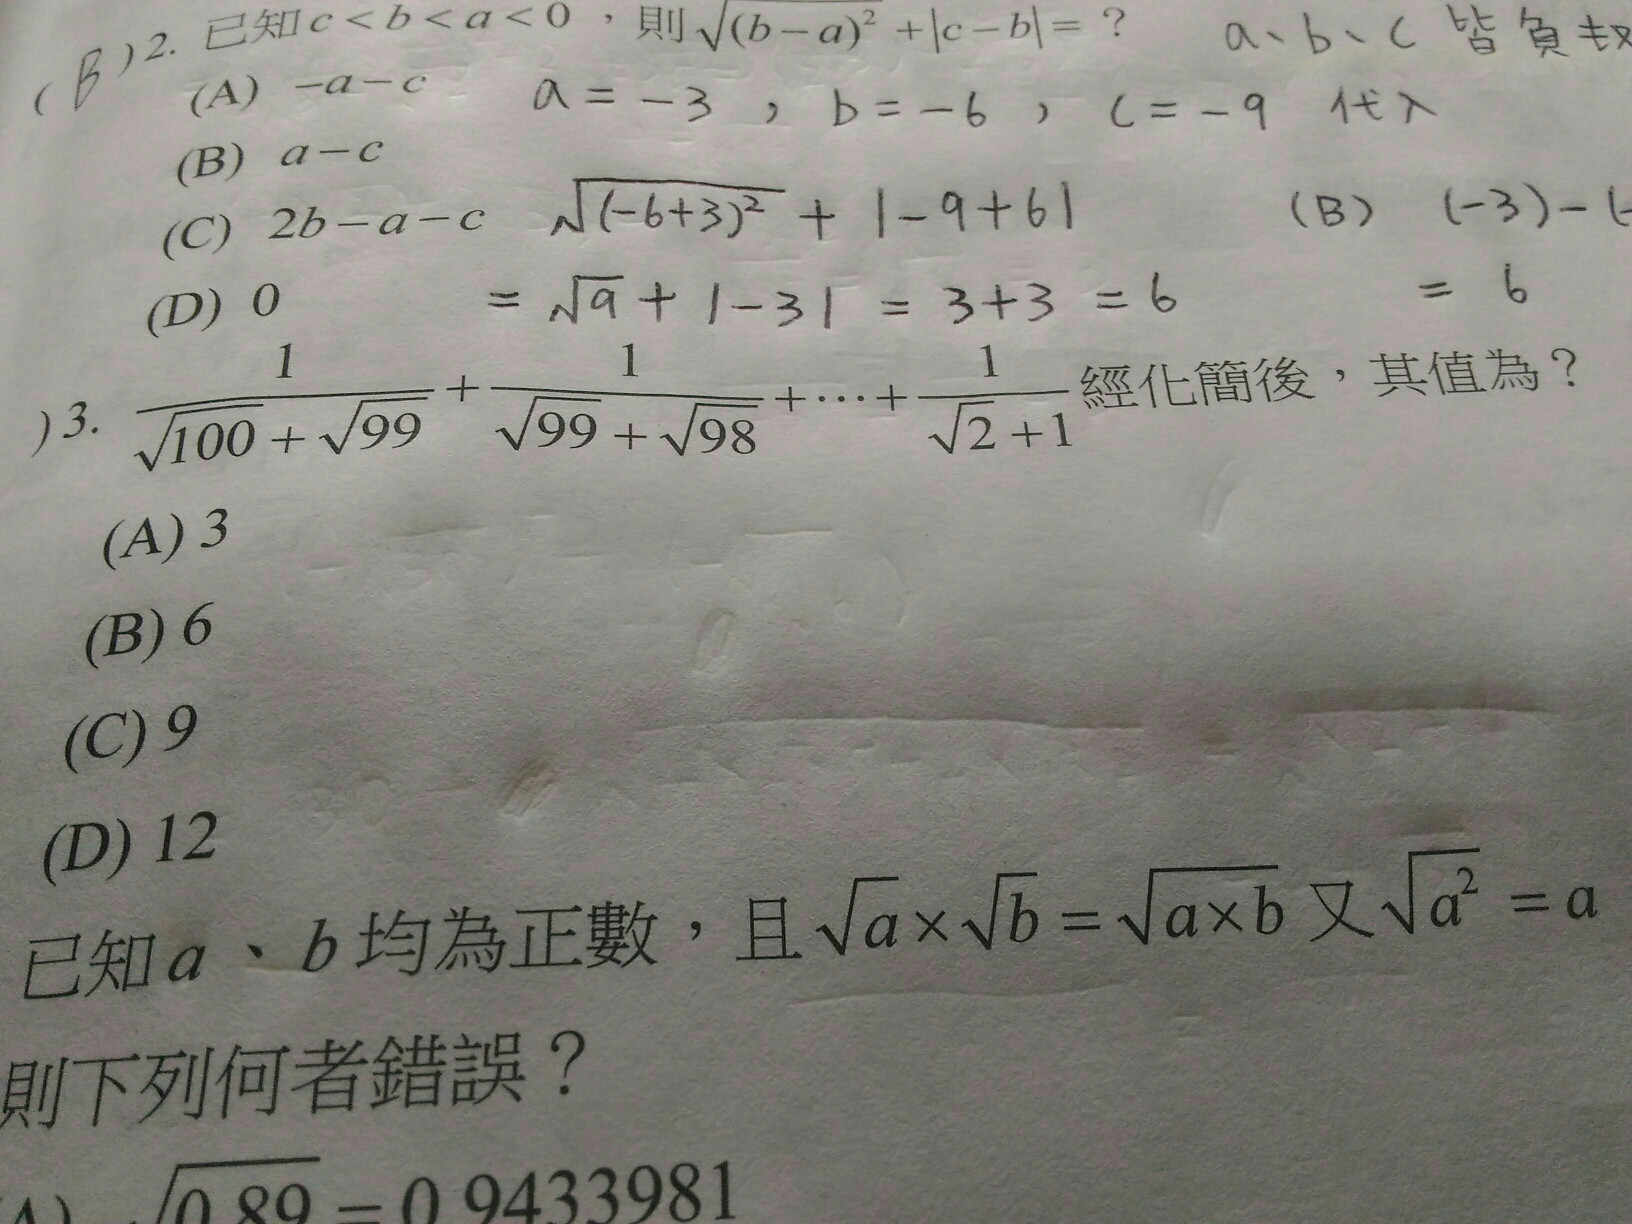 ( B )2. 已知c<b<a<0，則√(b−a)² +|c−b|=？ a、b、c 皆負
(A) −a−c a = −3 , b = −6 , c = −9 代入
(B) a−c
(C) 2b−a−c √(−6+3)² + |−9+6| (B) (−3)−(
(D) 0 = √9 + |−3| = 3+3 = 6 = 6
)3. 1/(√100+√99) + 1/(√99+√98) +⋯+ 1/(√2+1) 經化簡後，其值為？
(A) 3
(B) 6
(C) 9
(D) 12
已知a、b均為正數，且√a×√b=√a×b 又√a² =a
則下列何者錯誤？
A) √0.89=0.9433981